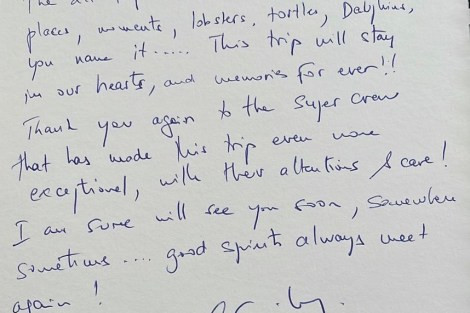 places, moments, lobsters, tortles, Dalphins,
you name it..... This trip will stay
in our hearts, and memories for ever!!
Thank you again to the Super Crew
that has made this trip even more
exceptionel, with their attentions & care!
I am sure will see you soon, Somewhere
Sometimes .... good spirits always meet
again!